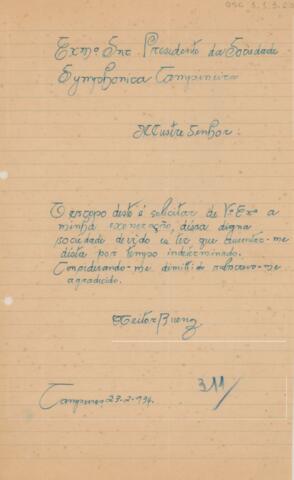 OSC 3.1.3.2
Exmº Snr. Presidente da Sociedade
Symphonica Campineira
Illustre Senhor.
O escopo deste é solicitar de Vª Exª a
minha exoneração, dessa digna
sociedade devido eu ter que ausentar-me
desta por tempo indeterminado.
Considerando-me demittido subscrevo-me
agradicido.
Heitor Bueno
311/
Campinas 23-2-934.